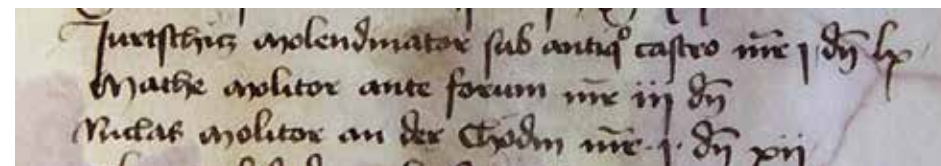 Jurtschicz molendinator sub antiqº castro mr̄ j dn̄ lx
Mathe molitor ante forum mr̄ iij dn̄
Niclas molitor an der Chodin mr̄ · j · dn̄ xij